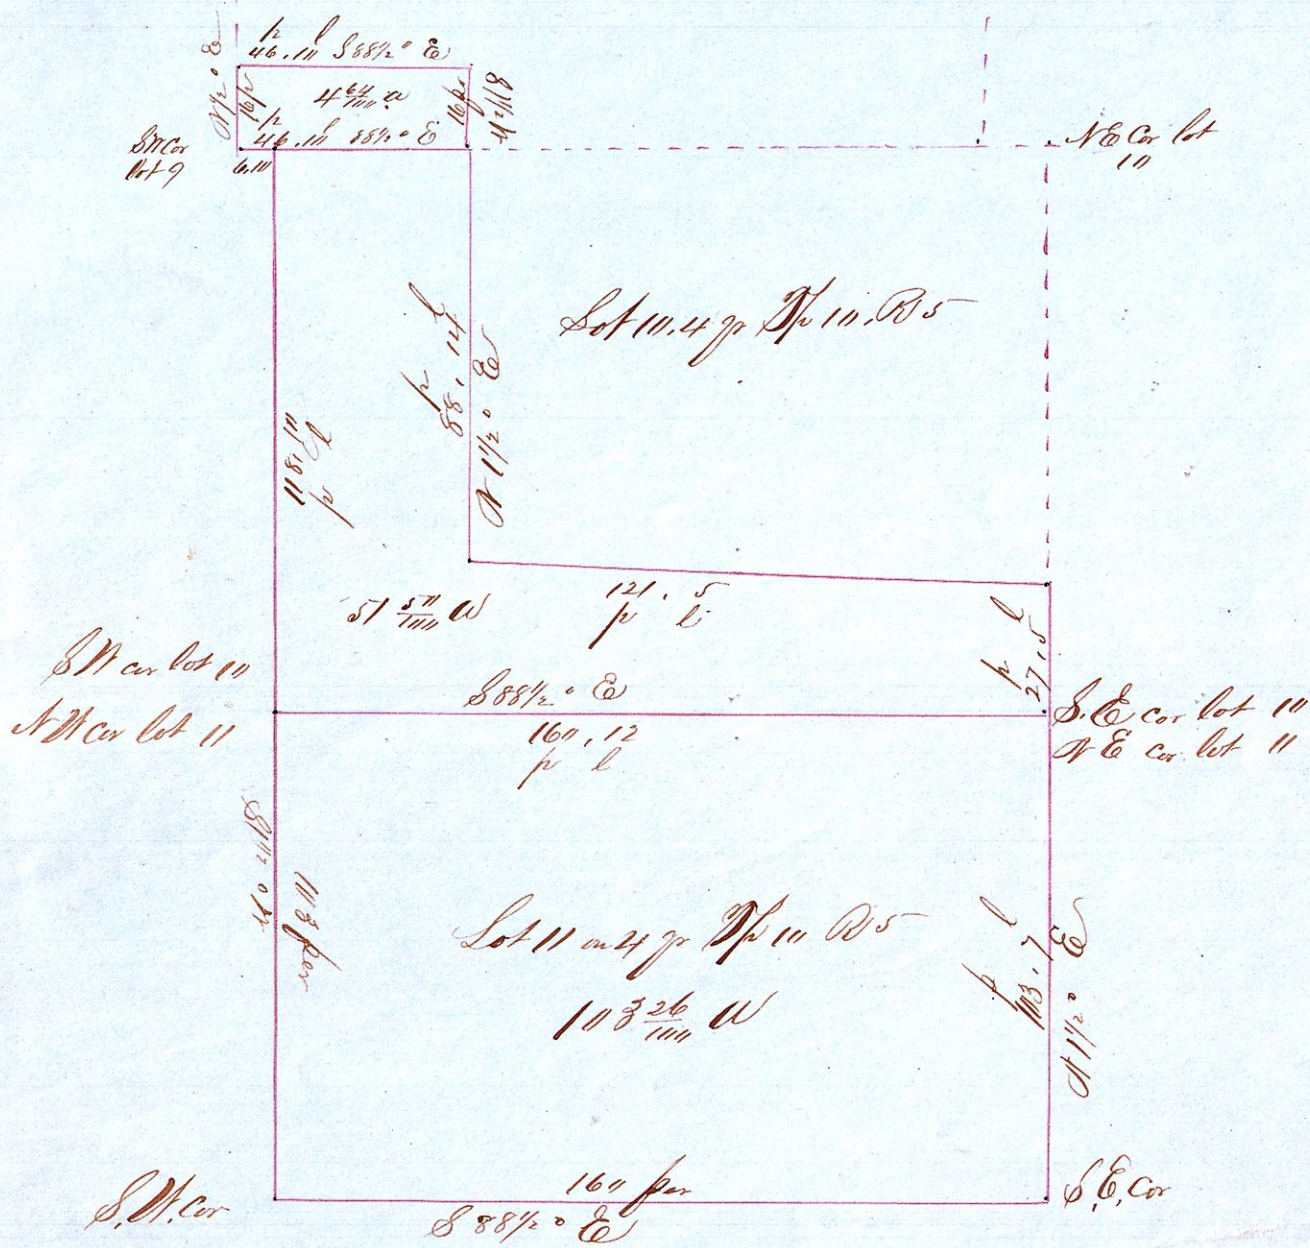 p l
46.10 S 88½° E
N 1½° E
16 p
4 64/100 a
16 p
S 1½ W
p l
46.10 88½° E
S W Cor
lot 9
6.10
N E Cor lot
10
Lot 10. 4 gr Tp 10. R 5
p l
88,14
N 1½° E
p l
118,10
51 50/100 A
121. 5
p l
p l
27,5
S W cor lot 10
N W cor lot 11
S 88½° E
160,12
p l
S. E cor lot 10
N E cor lot 11
S 1½° W
103 per
Lot 11 on 4 gr Tp 10 R 5
103 26/100 A
p l
103.7
N 1½° E
160 per
S 88½° E
S. W. Cor
S. E. Cor